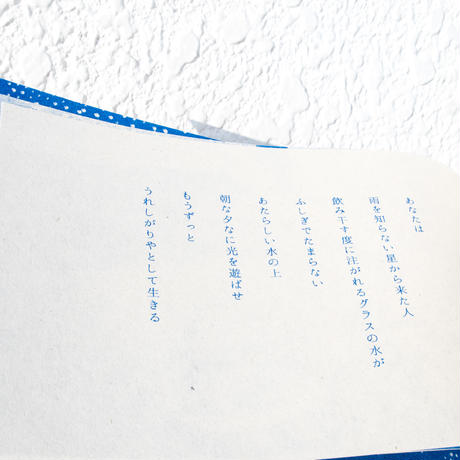 あなたは
雨を知らない星から来た人
飲み干す度に注がれるグラスの水が
ふしぎでたまらない
あたらしい水の上
朝な夕なに光を遊ばせ
もうずっと
うれしがりやとして生きる